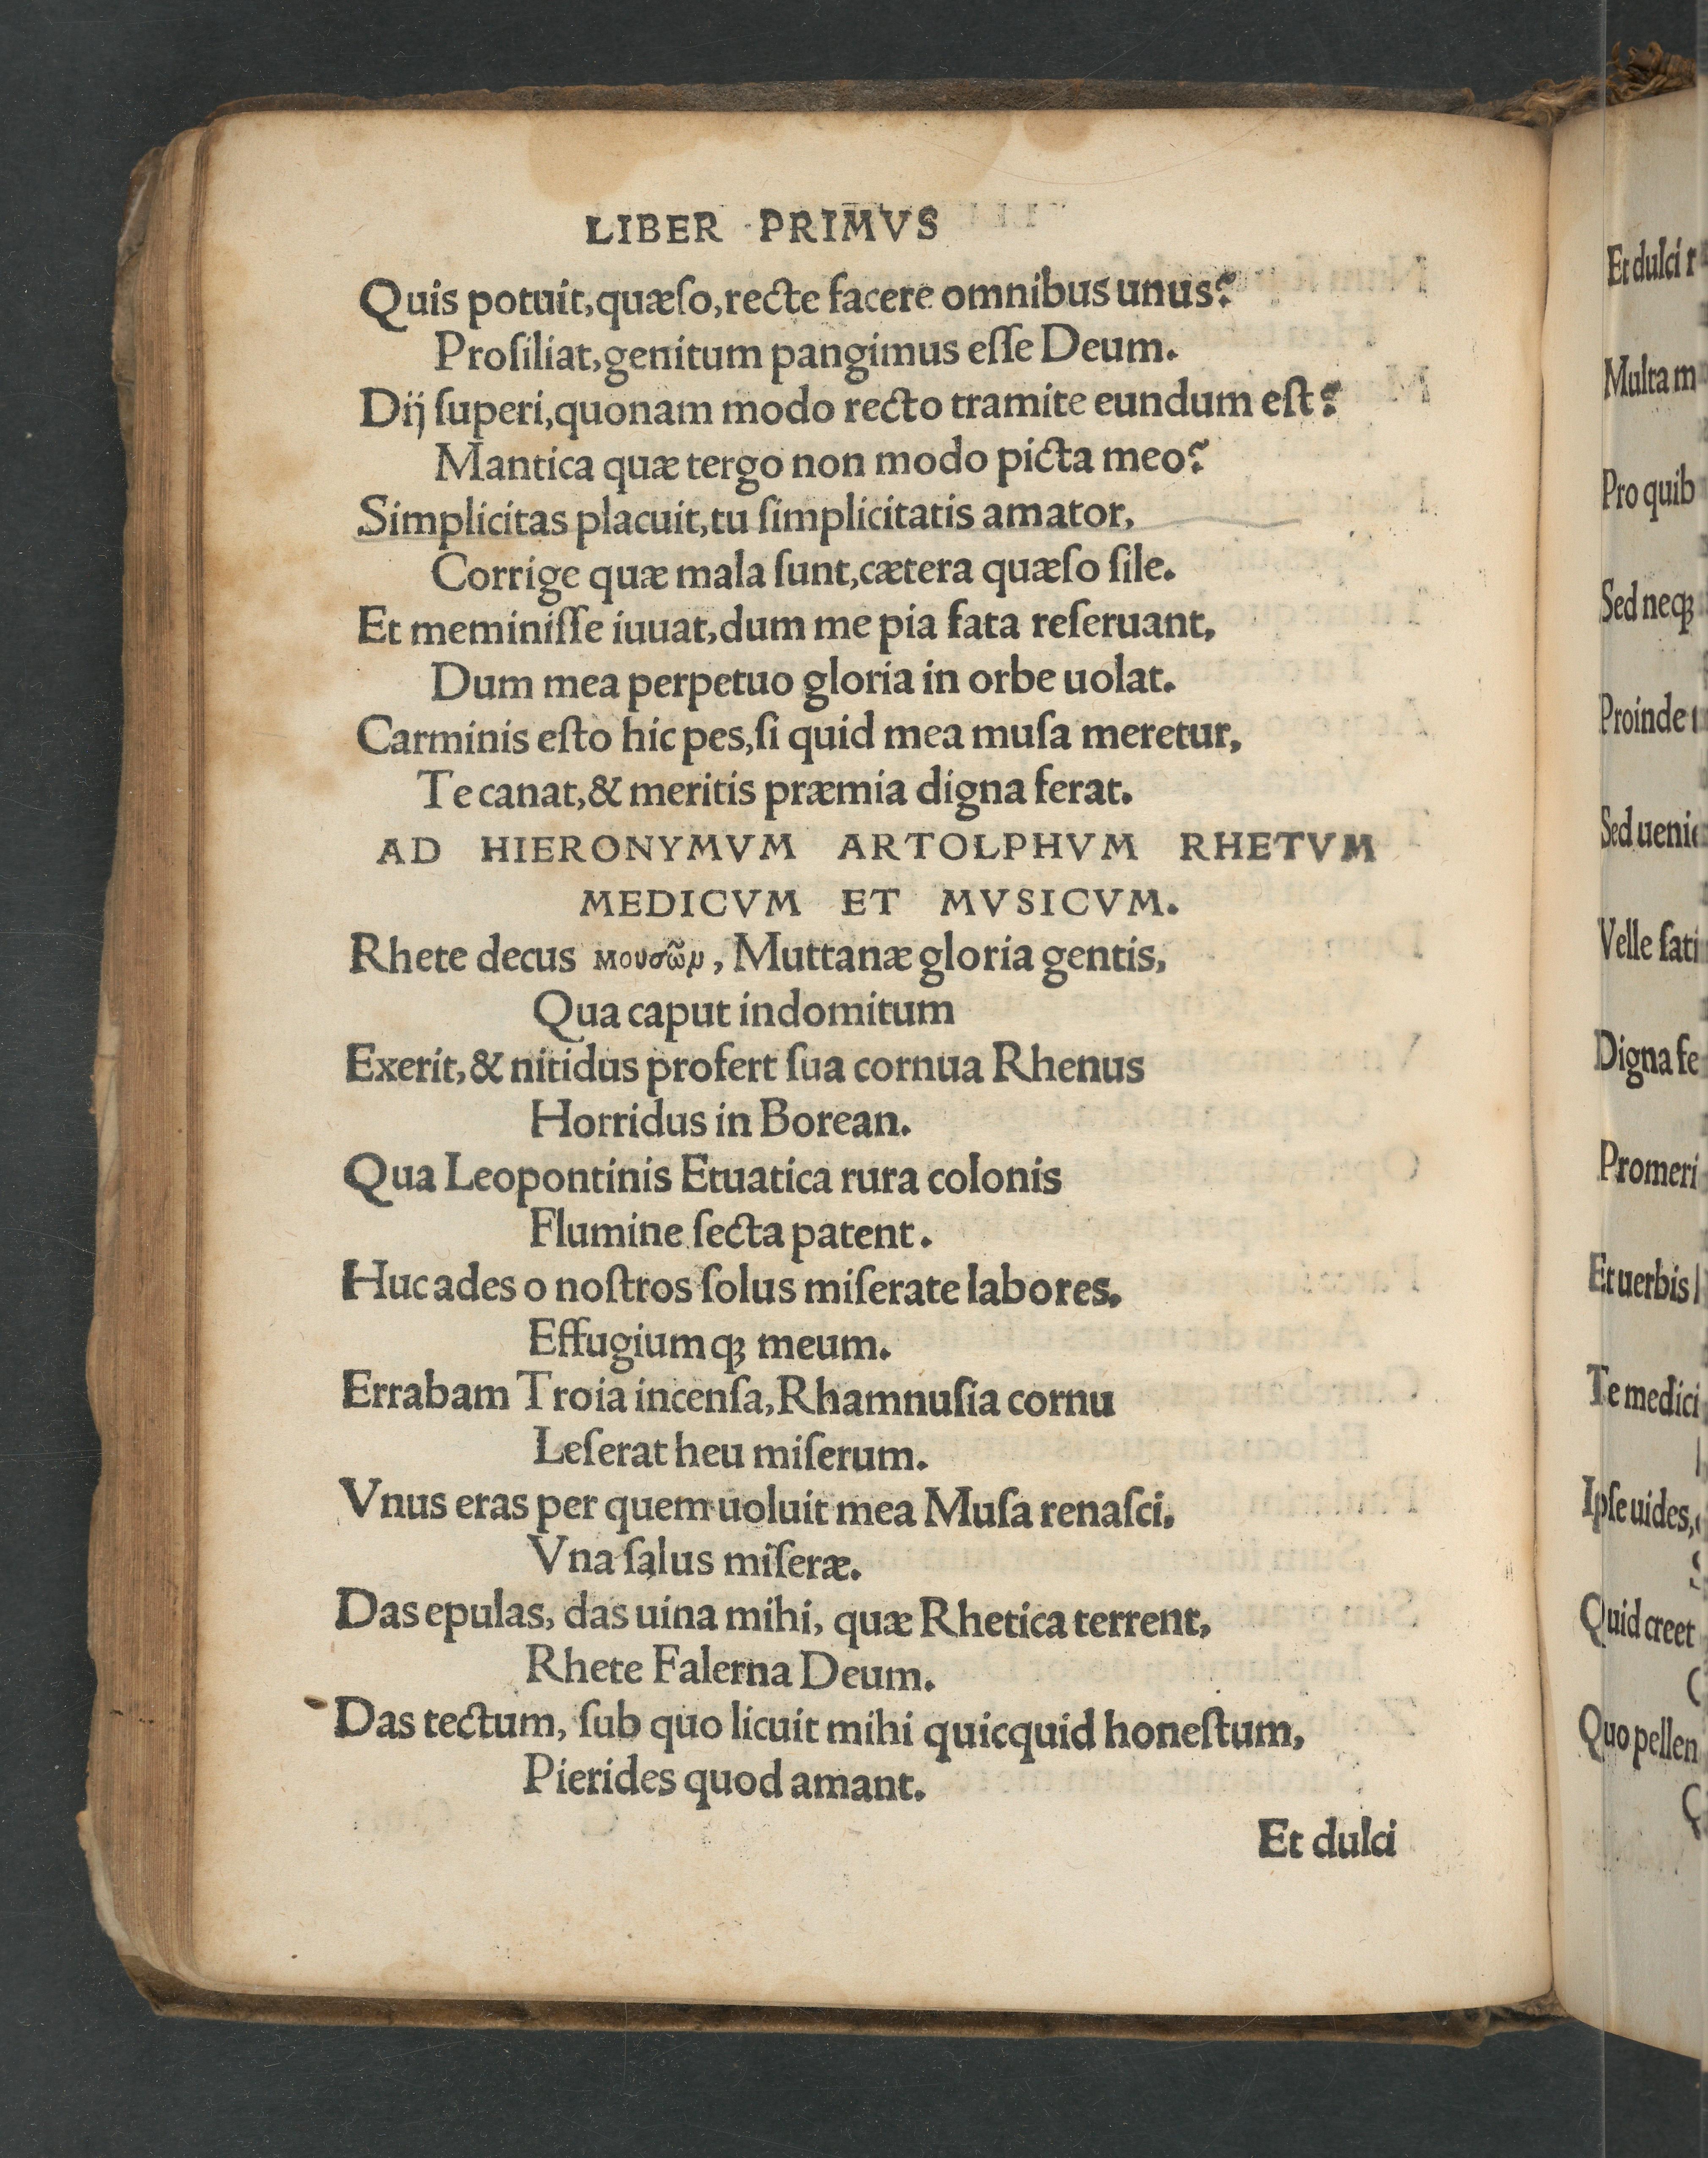 LIBER PRIMVS
Quis potuit, quæſo, recte facere omnibus unus?
Proſiliat, genitum pangimus eſſe Deum.
Dij ſuperi, quonam modo recto tramite eundum eſt?
Mantica quæ tergo non modo picta meo?
Simplicitas placuit, tu ſimplicitatis amator,
Corrige quæ mala ſunt, cætera quæſo ſile.
Et meminiſſe iuuat, dum me pia fata reſeruant,
Dum mea perpetuo gloria in orbe uolat.
Carminis eſto hic pes, ſi quid mea muſa meretur,
Te canat, & meritis præmia digna ferat.
AD HIERONYMVM ARTOLPHVM RHETVM
MEDICVM ET MVSICVM.
Rhete decus μουσῶν, Muttanæ gloria gentis,
Qua caput indomitum
Exerit, & nitidus profert ſua cornua Rhenus
Horridus in Borean.
Qua Leopontinis Etuatica rura colonis
Flumine ſecta patent.
Huc ades o noſtros ſolus miſerate labores,
Effugiumqꝫ meum.
Errabam Troia incenſa, Rhamnuſia cornu
Leſerat heu miſerum.
Vnus eras per quem uoluit mea Muſa renaſci,
Vna ſalus miſeræ.
Das epulas, das uina mihi, quæ Rhetica terrent,
Rhete Falerna Deum.
Das tectum, ſub quo licuit mihi quicquid honeſtum,
Pierides quod amant.
Et dulci
Et dulci
Multa
Pro
Sed neqꝫ
Proinde
Sed
Velle
Digna
Et uerbis
Te
Ipſe uides,
Quid creet
Quo